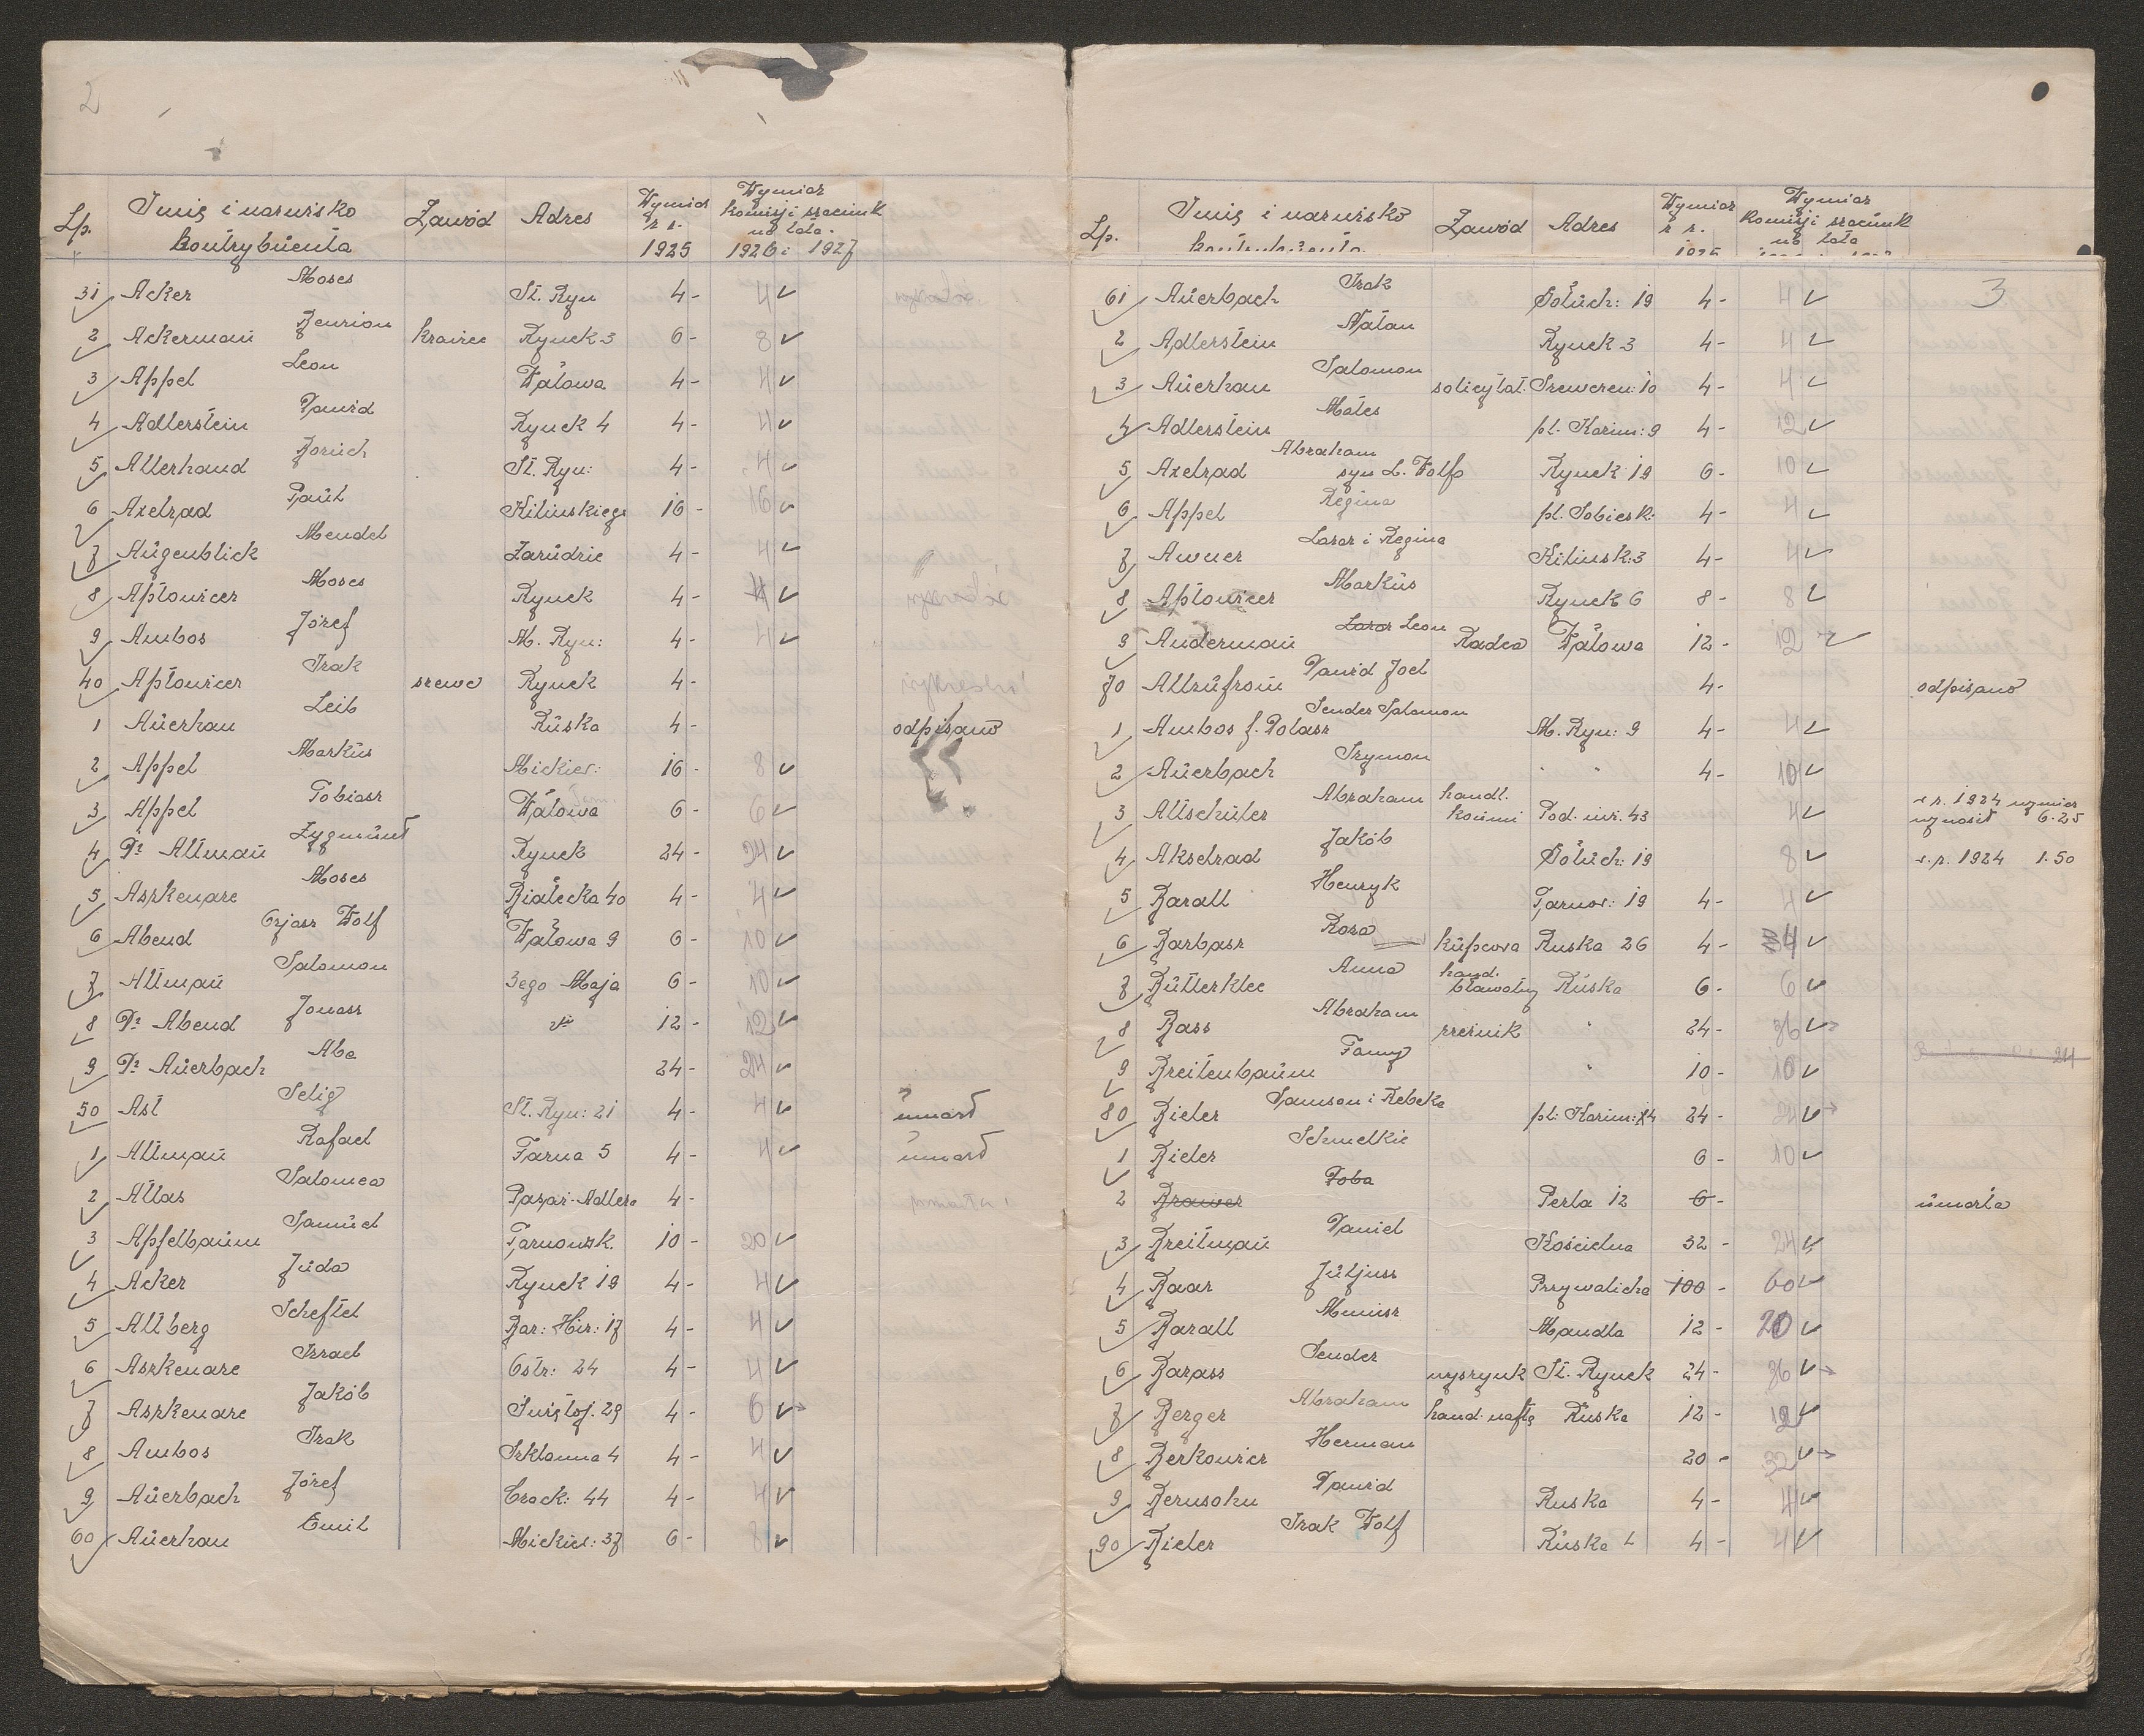 2
Lp. Imię i nazwisko kontrybuenta Zawód Adres Wymiar z r. 1925 Wymiar komisji szacunk na lata 1926 i 1927
31 Acker Moses St. Ryn 4- 4
2 Ackerman Benzion krawiec Rynek 3 6- 8
3 Appel Leon Wałowa 4- 4
4 Adlerstein Dawid Rynek 4 4- 4
5 Allerhand Boruch St. Ryn: 4- 4
6 Axelrad Paul Kilinskiego 16- 16
7 Augenblick Mendel Zarudzie 4- 4
8 Aptowicer Moses Rynek 4- 4
9 Ambos Józef M. Ryn: 4- 4
40 Aptowicer Izak szewc Rynek 4-
1 Auerhan Leib Ruska 4- odpisano
2 Appel Markus Mickiew: 16- 8
3 Appel Tobiasz Wałowa 6- 6
4 Dr Altman Zygmunt Rynek 24- 24
5 Aszkenaze Moses Białecka 40 4- 4
6 Abend Ozjasz Wolf Wałowa 9 6- 10
7 Altman Salomon 3ego Maja 6- 10
8 Dr Abend Jonasz 12- 12
9 Dr Auerbach Aba 24- 24
50 Ast Selig St. Ryn: 21 4- 4 umarł
1 Altman Rafael Farna 5 4- 4 umarł
2 Atlas Salomea Pasaż-Adlera 4-
3 Apfelbaum Samuel Tarnowsk. 10- 20
4 Acker Juda Rynek 19 4- 4
5 Altberg Scheftel Bar: Hir: 17 4- 4
6 Aszkenaze Izrael Ostr: 24 4- 4
7 Aszkenaze Jakób Świętoj. 29 4- 6
8 Ambos Izak Szklanna 4 4- 4
9 Auerbach Józef Crock: 44 4- 4
60 Auerhan Emil Mickiew: 37 6- 8
3
Lp. Imię i nazwisko kontrybuenta Zawód Adres Wymiar z r. 1925 Wymiar komisji szacunk na lata
61 Auerbach Izak Dołuch: 19 4- 4
2 Adlerstein Natan Rynek 3 4- 4
3 Auerhan Salomon solicytat. Szewczen: 10 4- 4
4 Adlerstein Mates pl. Kazim: 9 4- 12
5 Axelrad Abraham syn L. Wolfa Rynek 19 6- 10
6 Appel Regina pl. Sobiesk. 4- 4
7 Awner Lazar i Regina Kilinsk: 3 4- 4
8 Aptowicer Markus Rynek 6 8- 8
9 Anderman Lazar Leon Radca Wałowa 12- 12
70 Altzufrom Dawid Joel 4- odpisano
1 Ambos f. Polasz Sender Salomon M. Ryn: 9 4- 4
2 Auerbach Szymon " " 4- 10
3 Altschüler Abraham handl. końmi Pod. niż. 43 4 z r. 1924 wymiar wynosił 6.25
4 Akselrad Jakób Dołuch: 19 8 z. r. 1924 1.50
5 Baratt Henryk Tarnow: 19 4- 4
6 Barbasz Roza kupcowa Ruska 26 4- 4
7 Butterklee Anna hand. bławatny Ruska 6- 6
8 Bass Abraham rzeźnik " 24- 36
9 Breitenbaum Fanny " 10- 10
80 Bieler Samson i Rebeka pl: Kazim: 14 24- 24
1 Bieler Schmelkie 6- 10
2 Brawer Toba Perla 12 6- umarła
3 Breitman Daniel Kościelna 32- 24
4 Baar Juljusz Przywalicha 100- 60
5 Baratt Munisz Mandla 12- 20
6 Barass Sender wyszynk St. Rynek 24- 36
7 Berger Abraham hand. naftą Ruska 12- 12
8 Berkowicz Herman 20- 32
9 Bernsohn Dawid Ruska 4- 4
90 Bieler Izak Wolf Ruska 4- 4